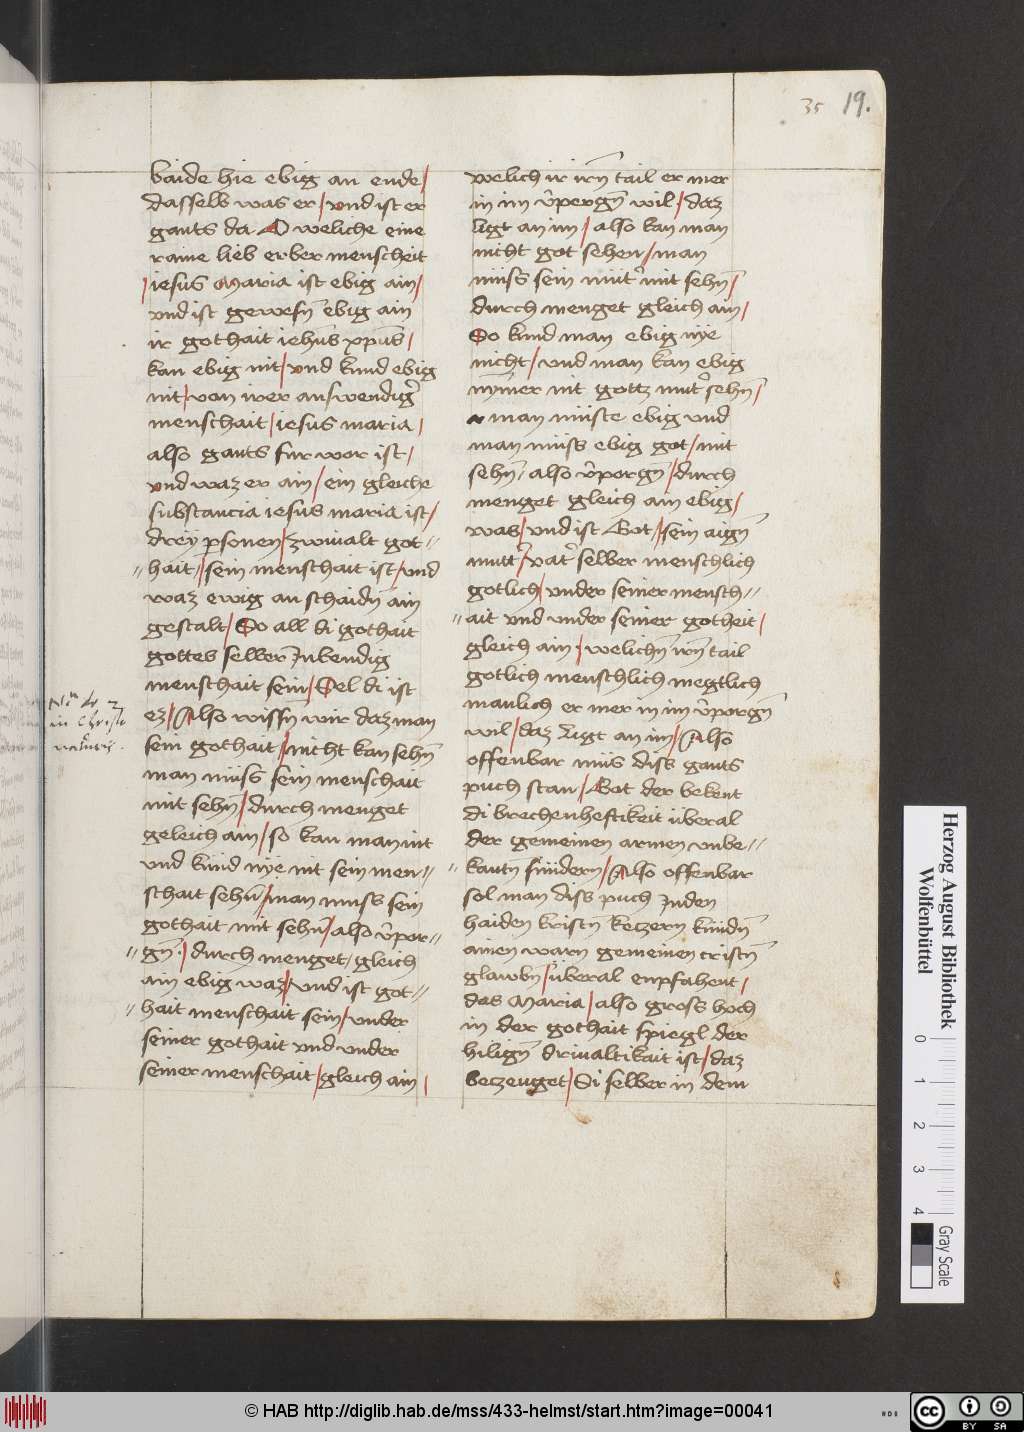 35 19.
baide hie ebig an ende /
dasselb was er / vnd ist er
gants da O weliche eine
raine lieb erber menscheit
/ iesus Maria ist ebig ain /
vnd ist gewesn̄ ebig ain
ir gothait iehūs xpūs /
kan ebig nit / vnd kund ebig
nit / von irer auswendiger
menschait / iesus maria /
also gants fur wor ist /
vnd waz er ain / ein gleiche
substancia iesus maria ist /
drey personen / zwiualt got-
hait / sein menschait ist / vnd
waz ewig an schaidn̄ ain
gestalt / So all di gothait
gottes selber Inbendig
menschait sein / Sel di ist
ez / Also wissn wir daz man
sein gothait / nicht kan sehn̄
man müss sein menschait
mit sehn̄ / durch menget
geleich ain / so kan man nit
vnd kund nÿe nit sein men-
schait sehn̄ / man muss sein
gothait mit sehn̄ / also v̄por-
gn̄ / durch menget / gleich
ain ebig waz / vnd ist got-
hait menschait sein / vnder
seiner gothait vnd vnder
seiner menschait / gleich ain /
in Christo
welich ir irn̄ tail er mer
in im v̄pergn̄ wil / daz
ligt an im / also kan man
nicht got sehen / man
müss sein mut' mit sehn̄ /
durch menget gleich ain /
So kund man ebig nÿe
nicht / vnd man kan ebig
nÿmer nit gottz mut' sehn̄ /
man müste ebig vnd
man müss ebig got / mit
sehn̄ / also v̄porgn̄ / durch
menget gleich ain ebig /
was / vnd ist Got / sein aign̄
mutt' / vat' selber menschlich
gotlich / vnder seiner mensch-
ait vnd vnder seiner gotheit /
gleich ain / welichn̄ irn̄ tail
gotlich menschlich megtlich
manlich er mer in im v̄porgn̄
wil / daz ligt an im / Also
offenbar müs diss gants
puch stan / Got der bekent
di brechenheftikeit überal
der gemeinen armen vnbe-
kantn sündern / Also offenbar
sol man diss puch Inden
haiden kristn̄ keczern kündn̄
ainen warn gemeinen cristn̄
glawbn̄ / überal enpfahent /
das Maria / also gross hoch
in der gothait spiegl der
hilign̄ driualtikait ist / daz
beczeuget / Si selber in dem
Herzog August Bibliothek
Wolfenbüttel
0 1 2 3 4
Gray Scale
© HAB http://diglib.hab.de/mss/433-helmst/start.htm?image=00041
cc BY SA